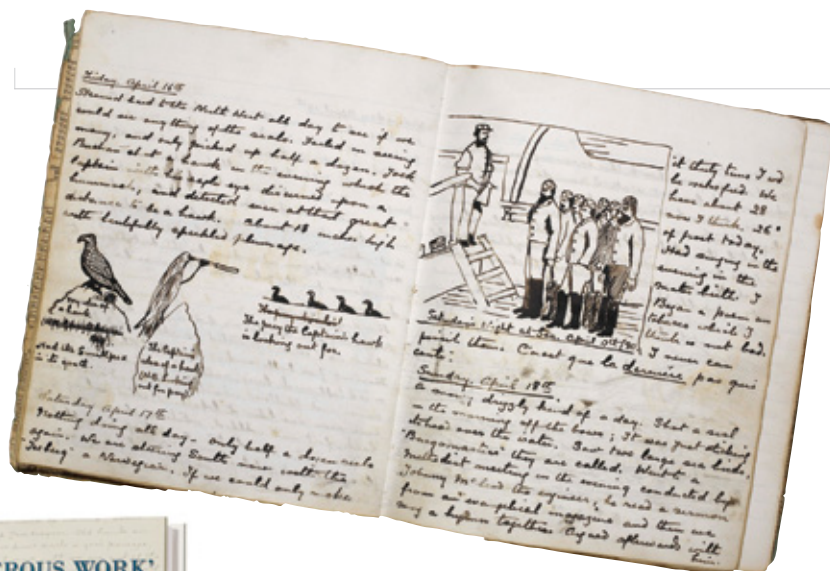 Friday April 16th
Steamed hard to the North West all day to see if we
could see anything of the seals. Failed in seeing
many, and only picked up half a dozen. Took
about a hawk in the evening which the
Captain with eye discerned upon a
and detected even at that great
distance to be a hawk. About 18 inches high
with beautifully speckled plumage.
a hawk
And the Smallpage
is its
The Captain's
idea of a hawk
The prey the Captain's hawk
is looking out for.
Saturday April 17th
Nothing doing all day. Only half a dozen seals
again. We are South now with the
a Norwegian. If we could only make
it thirty tons I'd
be satisfied. We
have about 28
now I think. 26°
of frost today.
Had singing in the
evening in the
mate's berth. I
Began a poem on
tobacco which I
think is not bad.
I never can
Saturday Night at Sea. April 17th
finish them. C'est que la dernière pas qui
coute.
Sunday April 18th
A day. Shot a seal
in the morning off the bows; It was just sticking
above the water. Saw two large sea birds,
"Burgomasters" they are called. Went to a
Methodist meeting in the evening conducted by
Johnny McLeod the engineer; he read a sermon
from an evangelical magazine and then we
sang a hymn together. Argued afterwards with
him.
EROUS WORK'